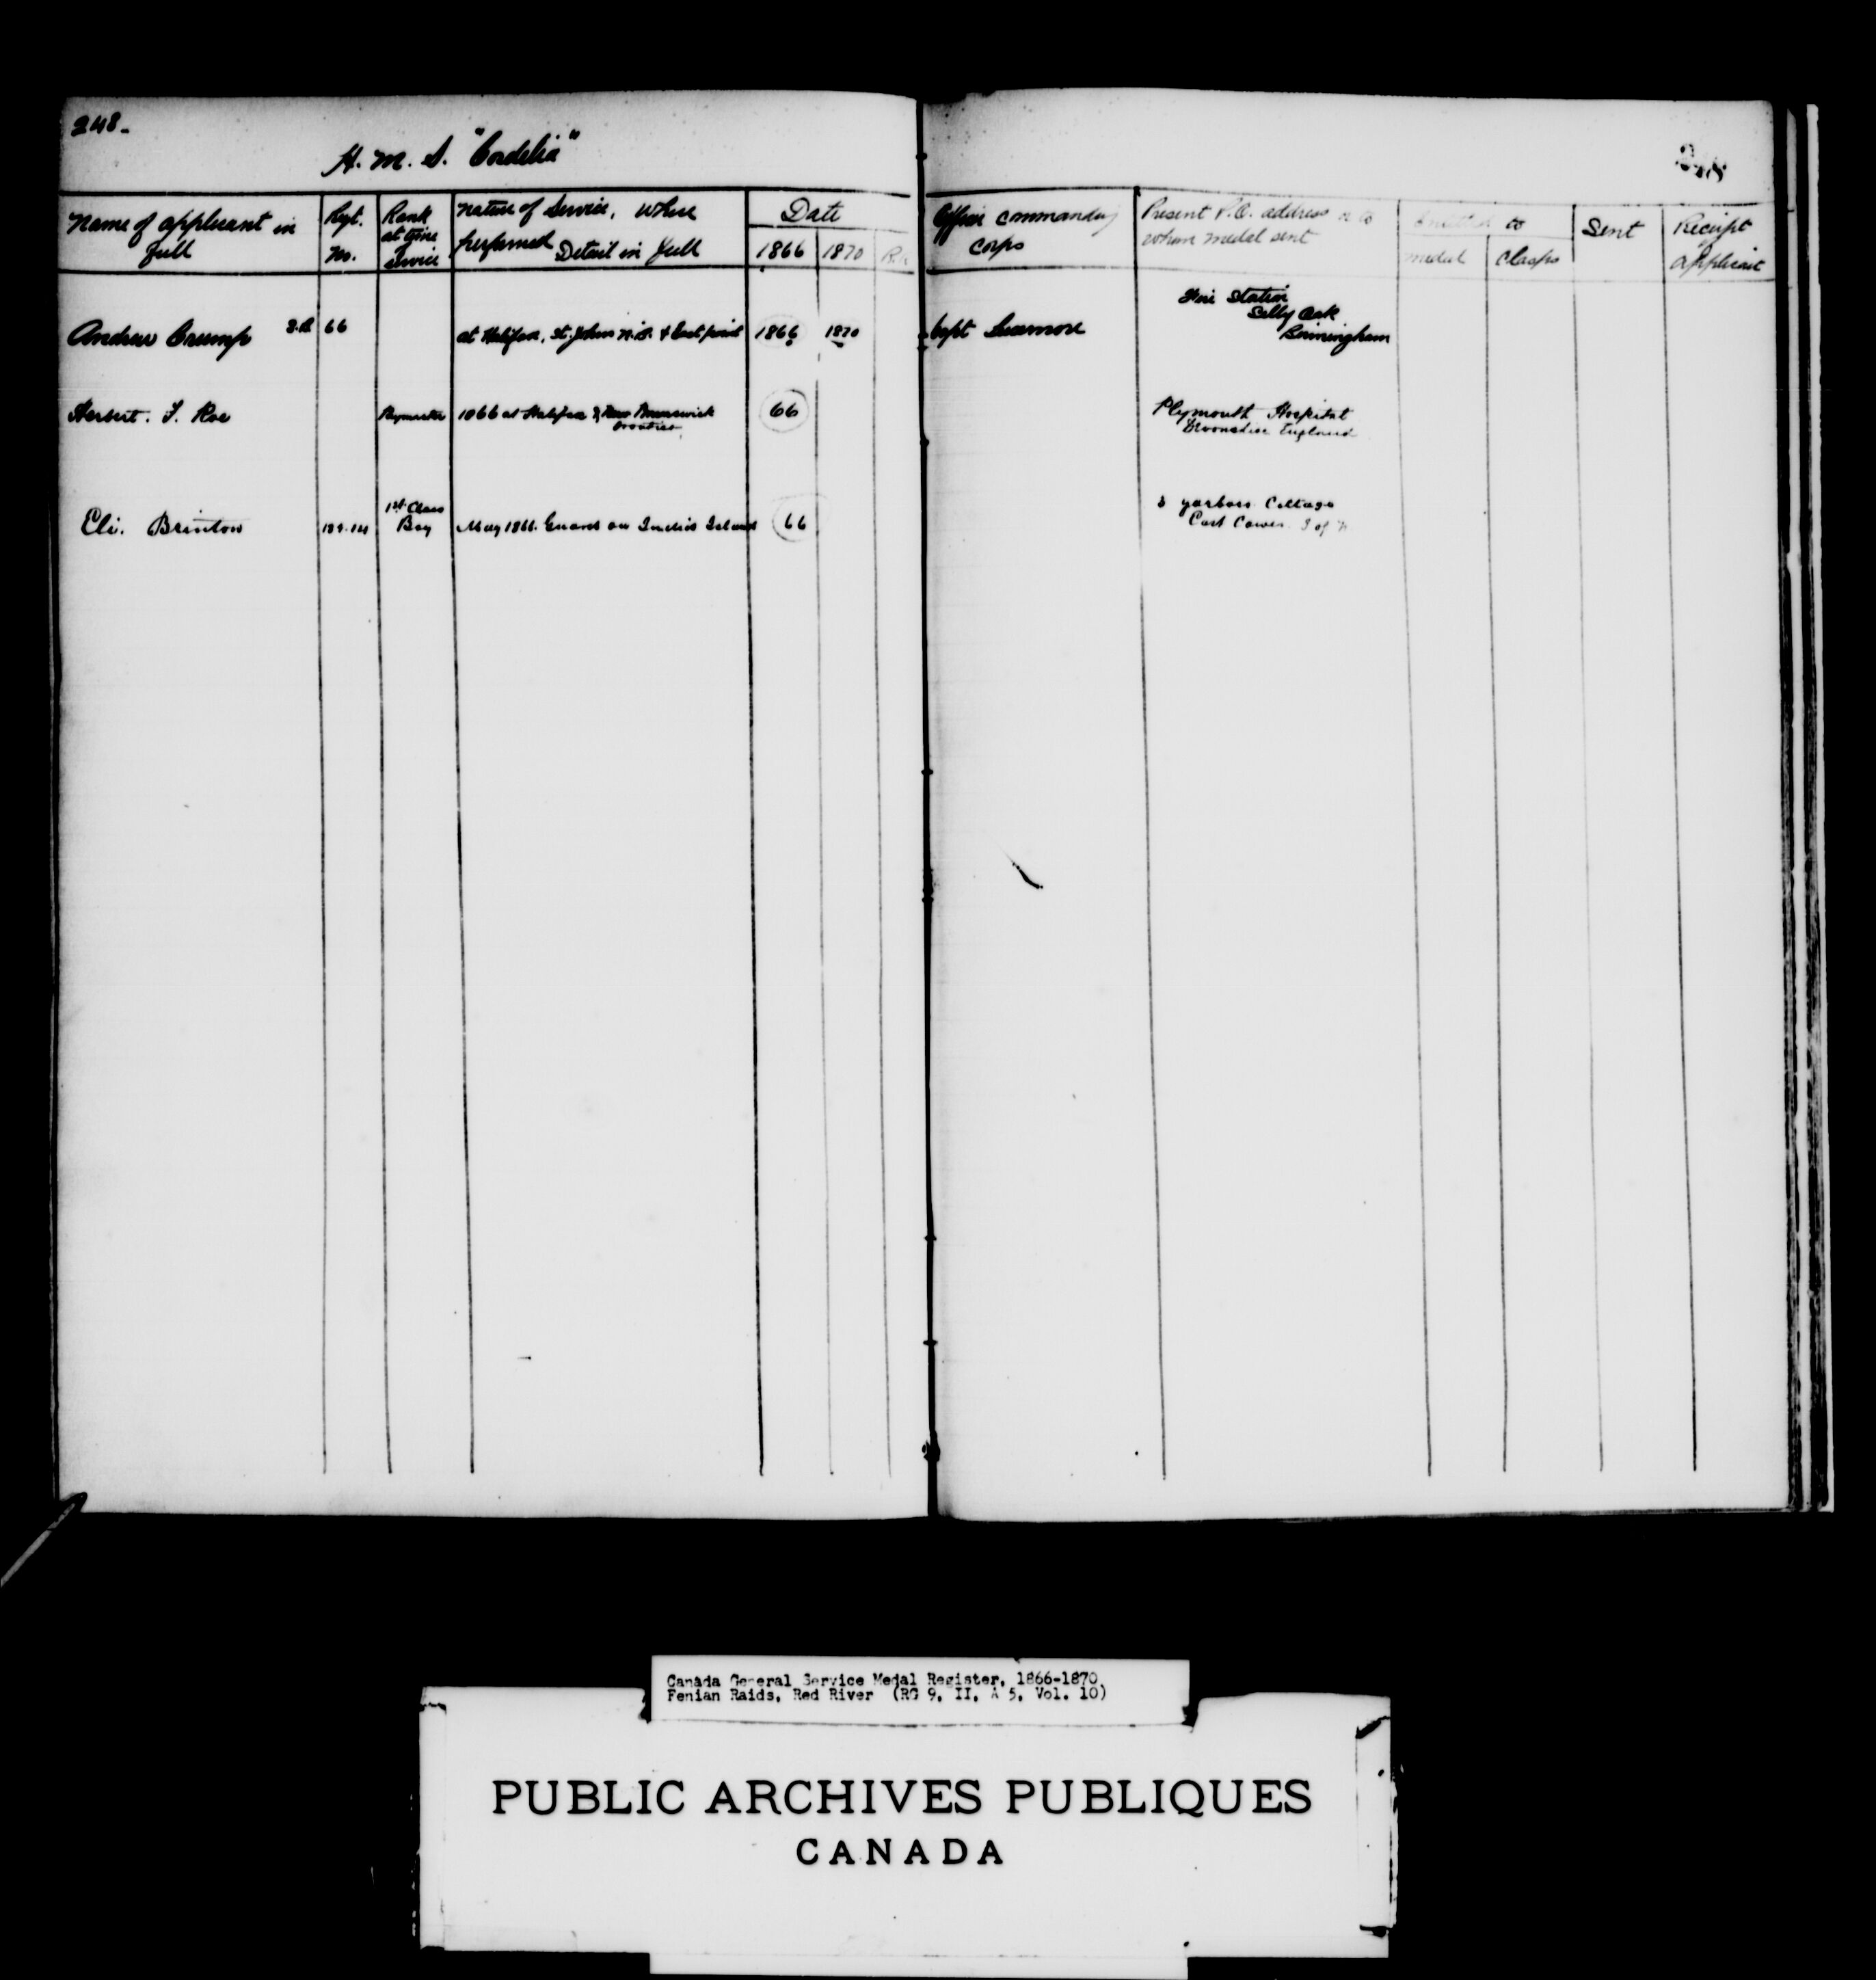 248-
H. M. S. "Cordelia"
248
Name of applicant in full
Regt. No.
Rank at time Service
Nature of Service, where performed Detail in full
Date
1866 1870
Officer Commanding Corps
Present P.O. address or to whom medal sent
Entitled to
medal Clasps
Sent
Receipt applicant
Andrew Crump 66 at Halifax, St. John N.B. & Eastport 1866 1870 Capt
Fire Station
Selly Oak
Birmingham
Herbert. J. Roe Paymaster 1866 at Halifax & New Brunswick 66
frontier
Plymouth Hospital
Devonshire England
1st Class
Eli. Brinton Boy May 1866. Guard on Indian Island 66
Cottage
East Cowes I of W
Canada General Service Medal Register, 1866-1870,
Fenian Raids, Red River (RG 9, II, A 5, Vol. 10)
PUBLIC ARCHIVES PUBLIQUES
CANADA